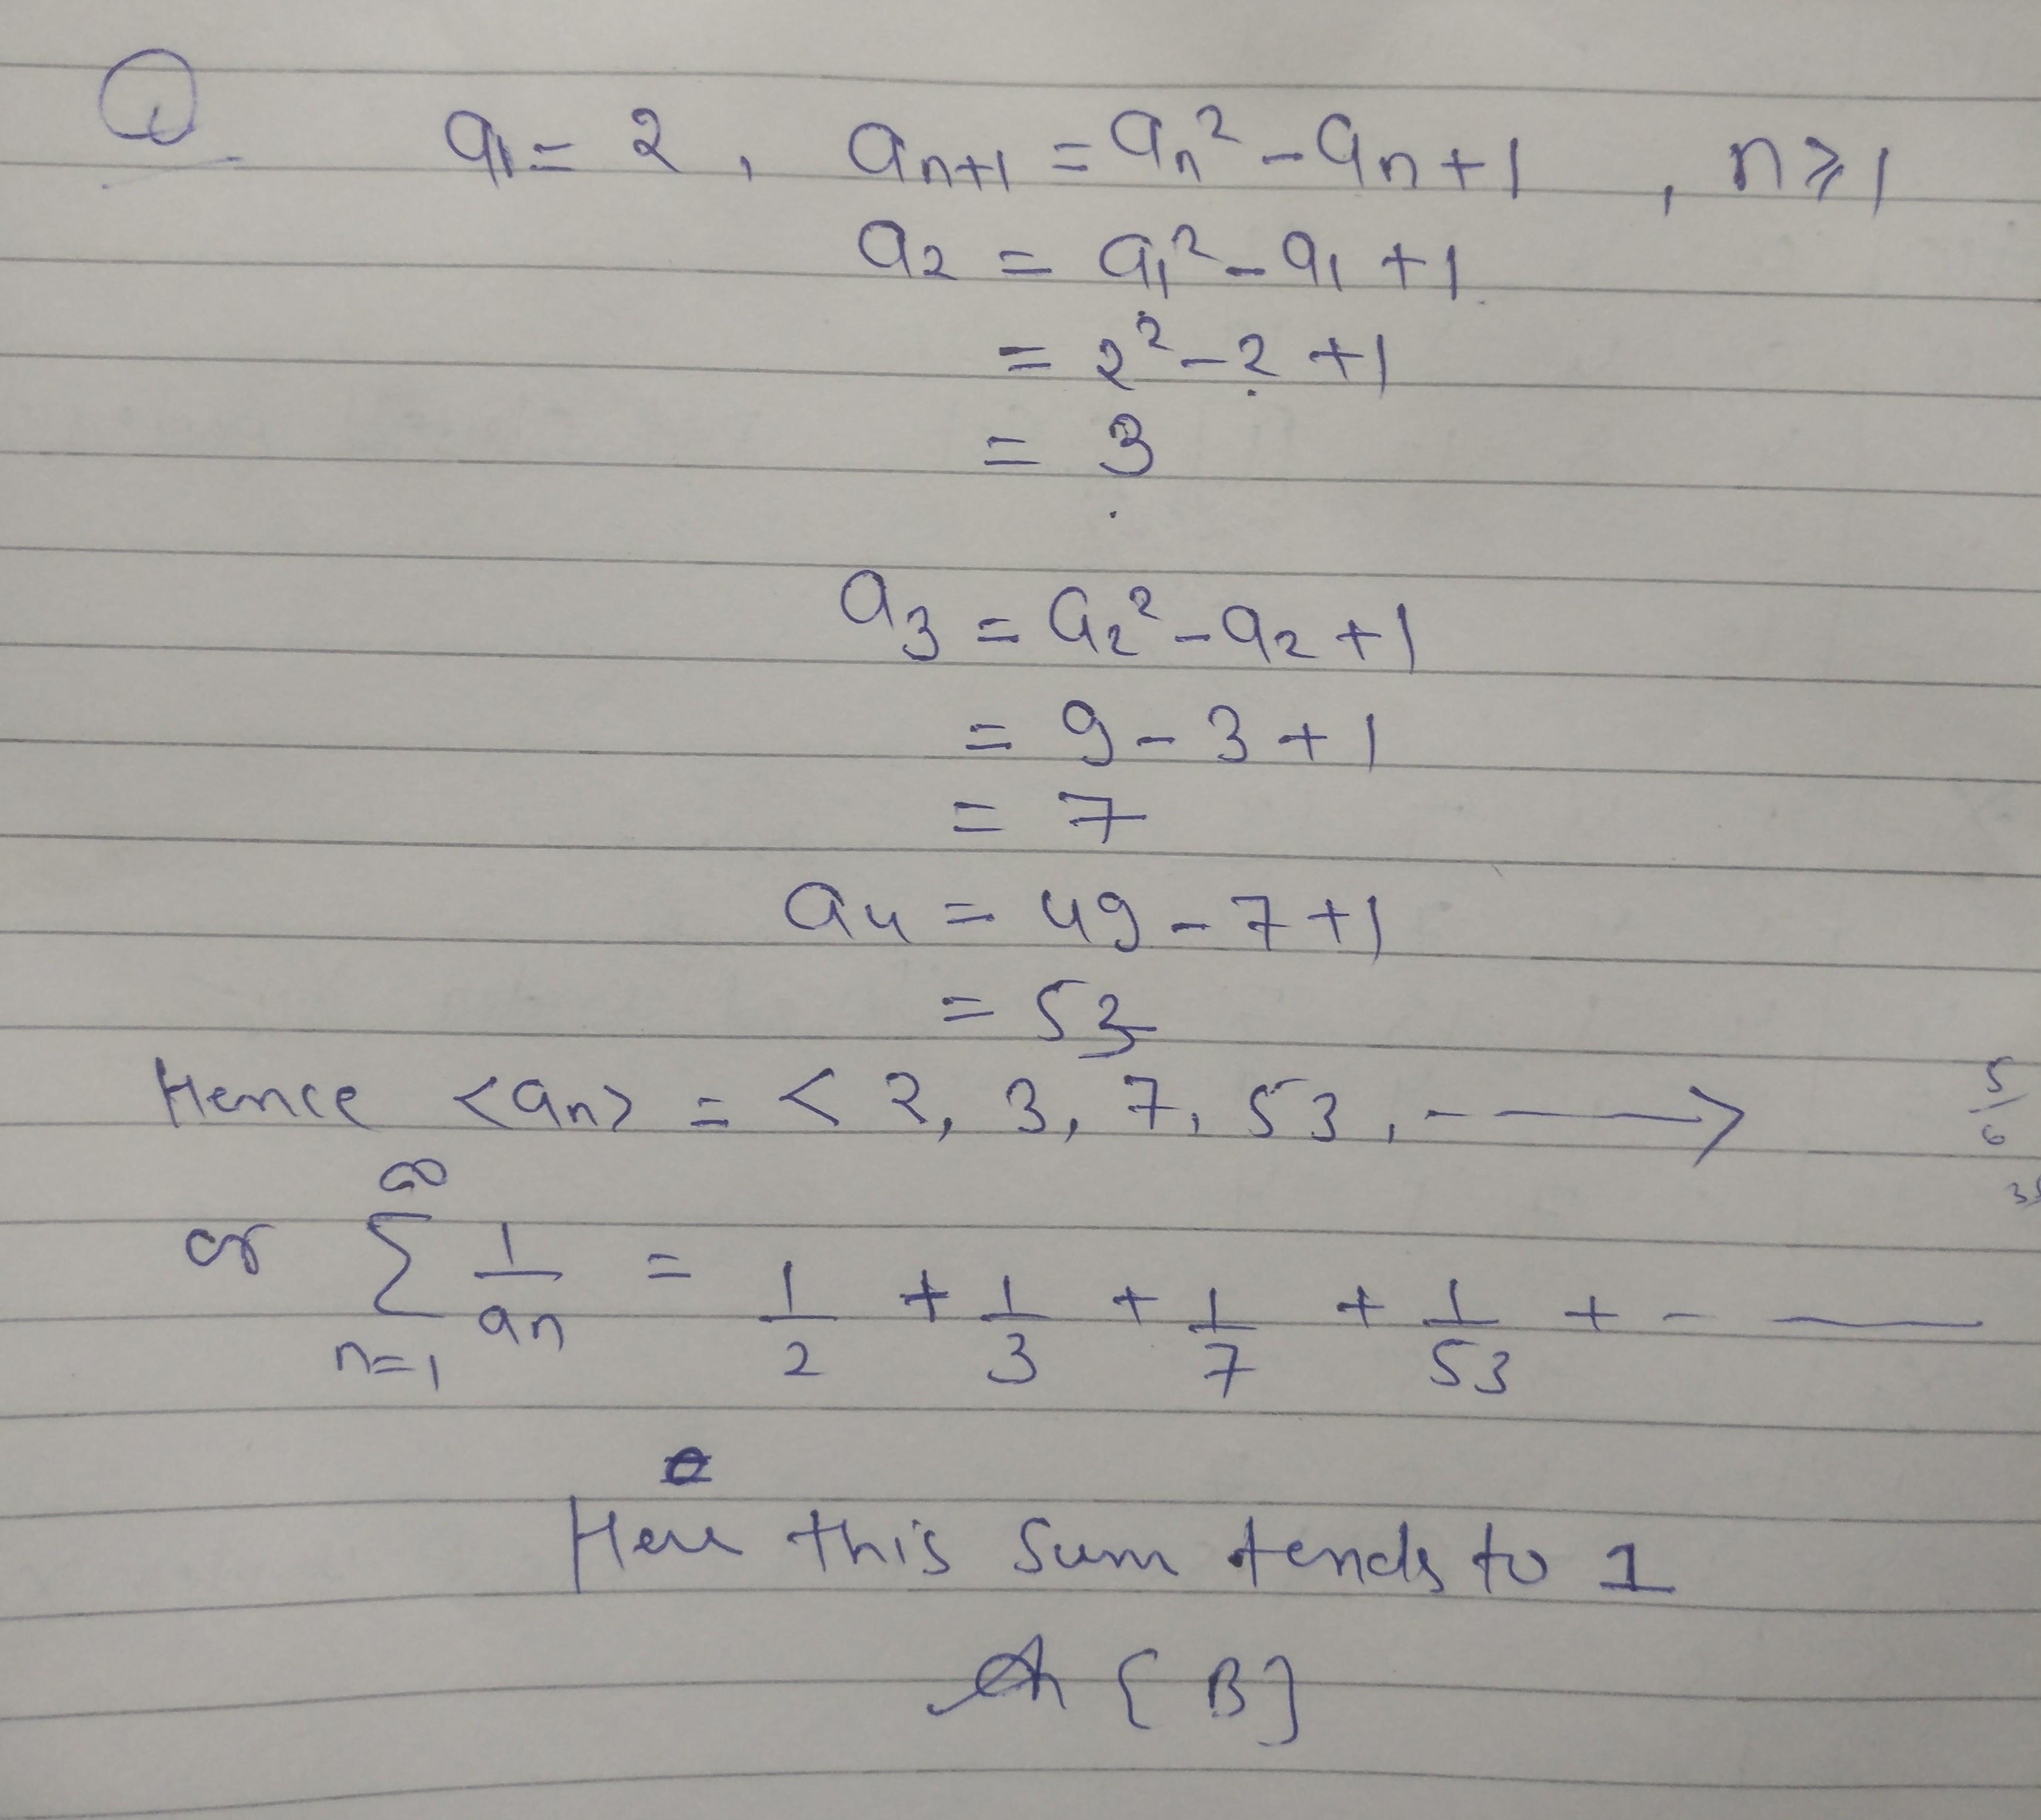 Q a₁ = 2, aₙ₊₁ = aₙ² - aₙ + 1, n ≥ 1
a₂ = a₁² - a₁ + 1
= 2² - 2 + 1
= 3
a₃ = a₂² - a₂ + 1
= 9 - 3 + 1
= 7
a₄ = 49 - 7 + 1
= 53
Hence <aₙ> = < 2, 3, 7, 53, - —>
5/6
or ∑_{n=1}^{∞} 1/aₙ = 1/2 + 1/3 + 1/7 + 1/53 + - —
Here this sum tends to 1
{B}